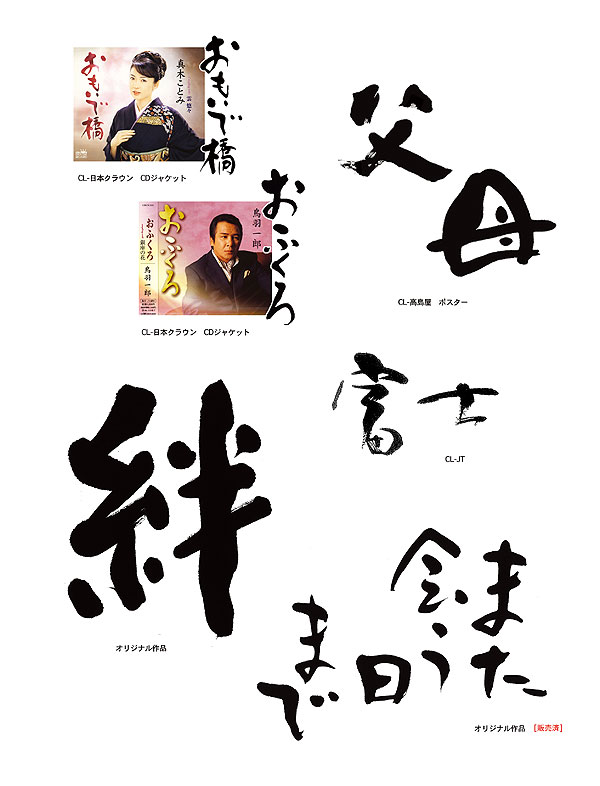 おもいで橋
真木ことみ
おもいで橋
CL-日本クラウン　CDジャケット
父母
CL-高島屋　ポスター
おふくろ
鳥羽一郎
おふくろ
銀座の花
鳥羽一郎
おふくろ
CL-日本クラウン　CDジャケット
富士
CL-JT
絆
オリジナル作品
また
会う
日
まで
オリジナル作品　[販売済]